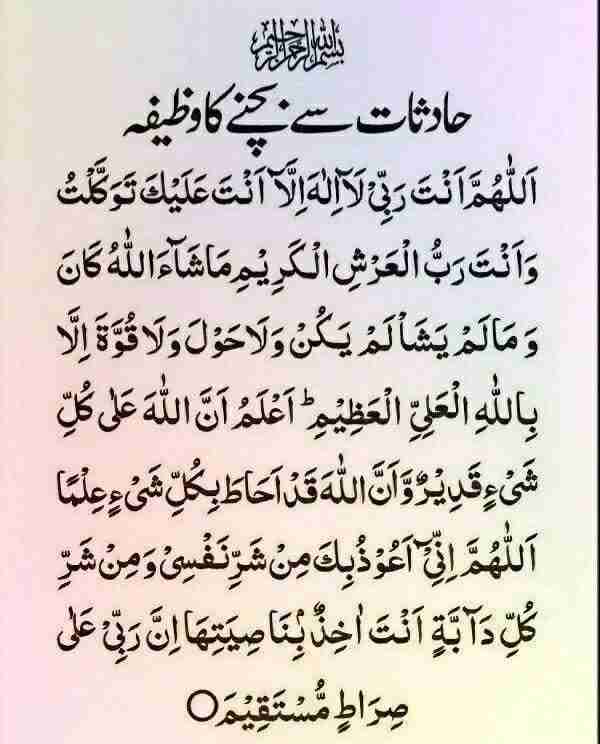 بسم الله الرحمن الرحيم
حادثات سے بچنے کا وظیفہ
اَللّٰهُمَّ اَنْتَ رَبِّیْ لَآ اِلٰهَ اِلَّآ اَنْتَ عَلَيْكَ تَوَكَّلْتُ
وَاَنْتَ رَبُّ الْعَرْشِ الْكَرِيْمِ مَاشَآءَ اللّٰهُ كَانَ
وَمَالَمْ يَشَاْ لَمْ يَكُنْ وَلَا حَوْلَ وَلَا قُوَّةَ اِلَّا
بِاللّٰهِ الْعَلِيِّ الْعَظِيْمِ ؕ اَعْلَمُ اَنَّ اللّٰهَ عَلٰى كُلِّ
شَیْءٍ قَدِيْرٌ وَّاَنَّ اللّٰهَ قَدْ اَحَاطَ بِكُلِّ شَیْءٍ عِلْمًا
اَللّٰهُمَّ اِنِّیْٓ اَعُوْذُ بِكَ مِنْ شَرِّ نَفْسِیْ وَمِنْ شَرِّ
كُلِّ دَآبَّةٍ اَنْتَ اٰخِذٌۢ بِنَاصِيَتِهَا اِنَّ رَبِّیْ عَلٰى
صِرَاطٍ مُّسْتَقِيْمَ ○